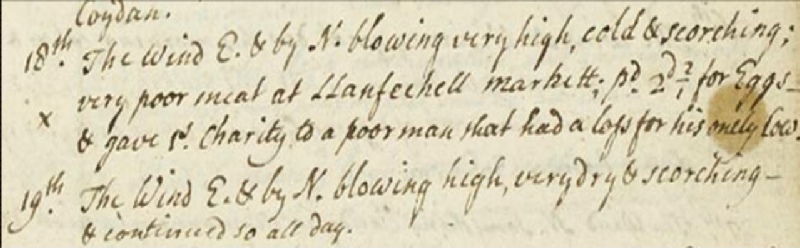 Coydan.
18th. The Wind E. & by N. blowing very high, cold & scorching;
x very poor meat at Llanfechell markett; pd. 2d ½ for Eggs_
& gave 1s. Charity to a poor man that had a loss for his onely Cow.
19th. The Wind E. & by N. blowing high, very dry & scorching_
& continued so all day.